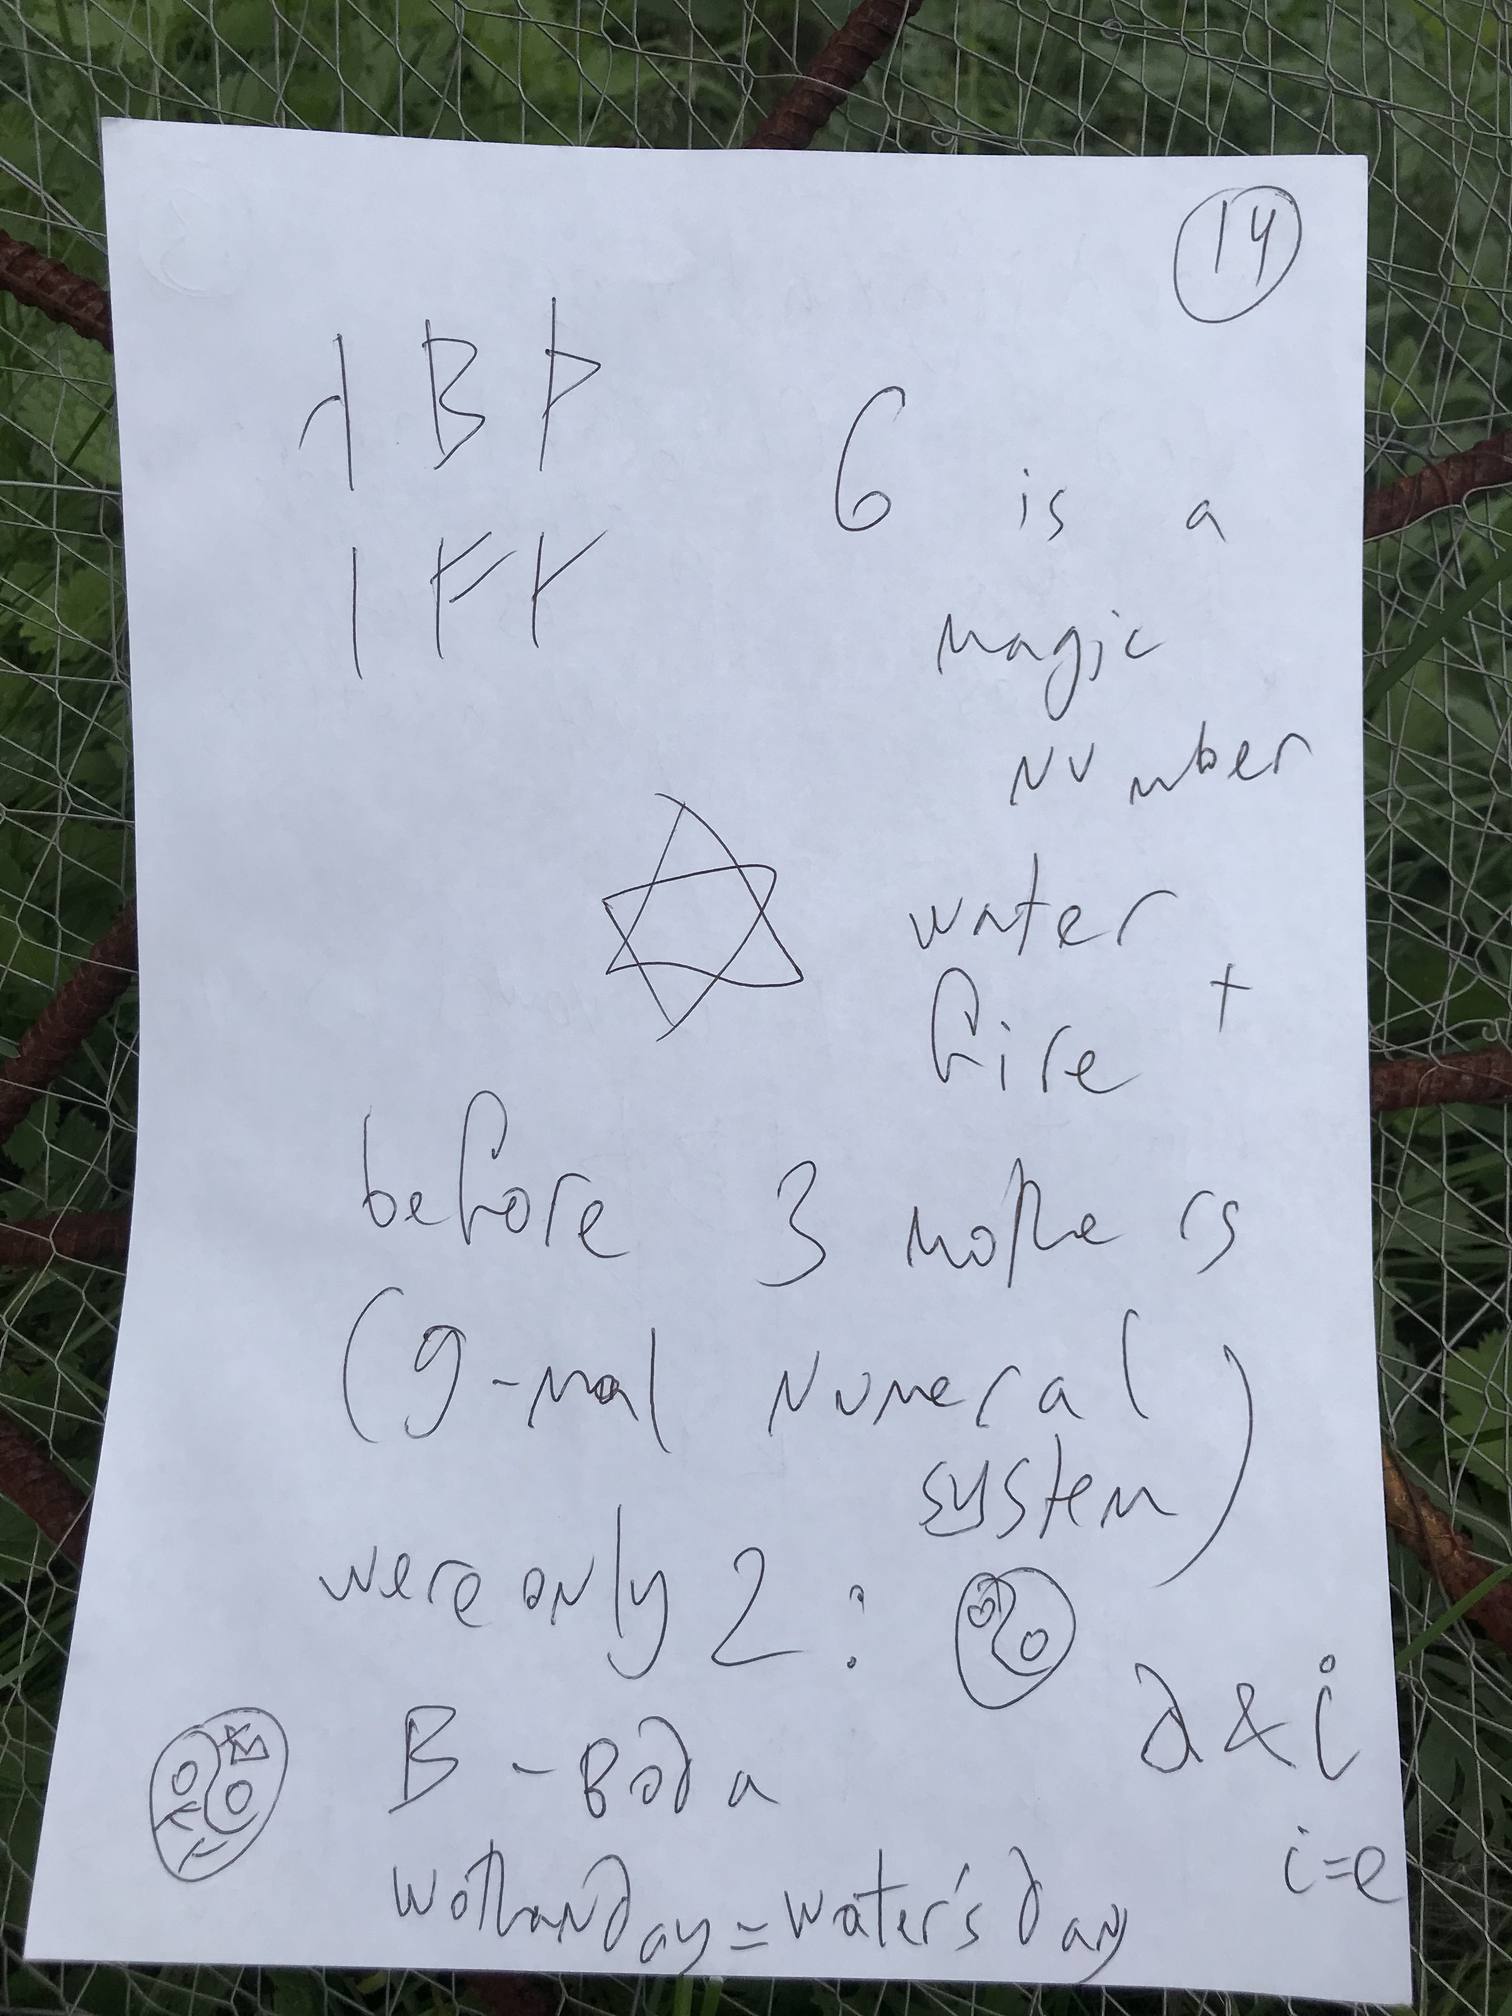 14
ᛆ B ᚦ
6 is a
ᛁ ᚠ ᚴ
magic
number
water
+
fire
before 3 mothers
(9-mal numeral
system)
were only 2 :
∂ & i
B - вода
i=e
wothanday = water's day